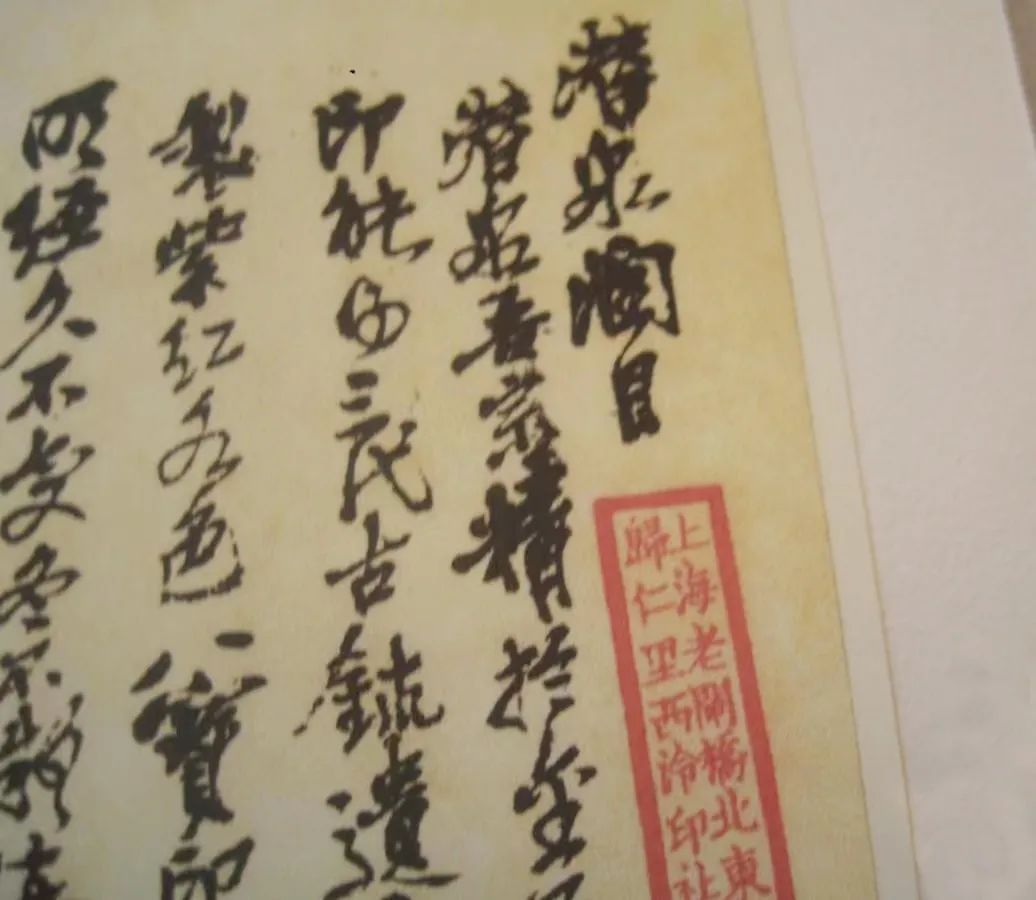 潛泉潤目
潛泉吾宗精於金
印能得三代古鉥遺
製紫紅各色八寶印
明經久不變冬不凝
上海老閘橋北東
歸仁里西泠印社